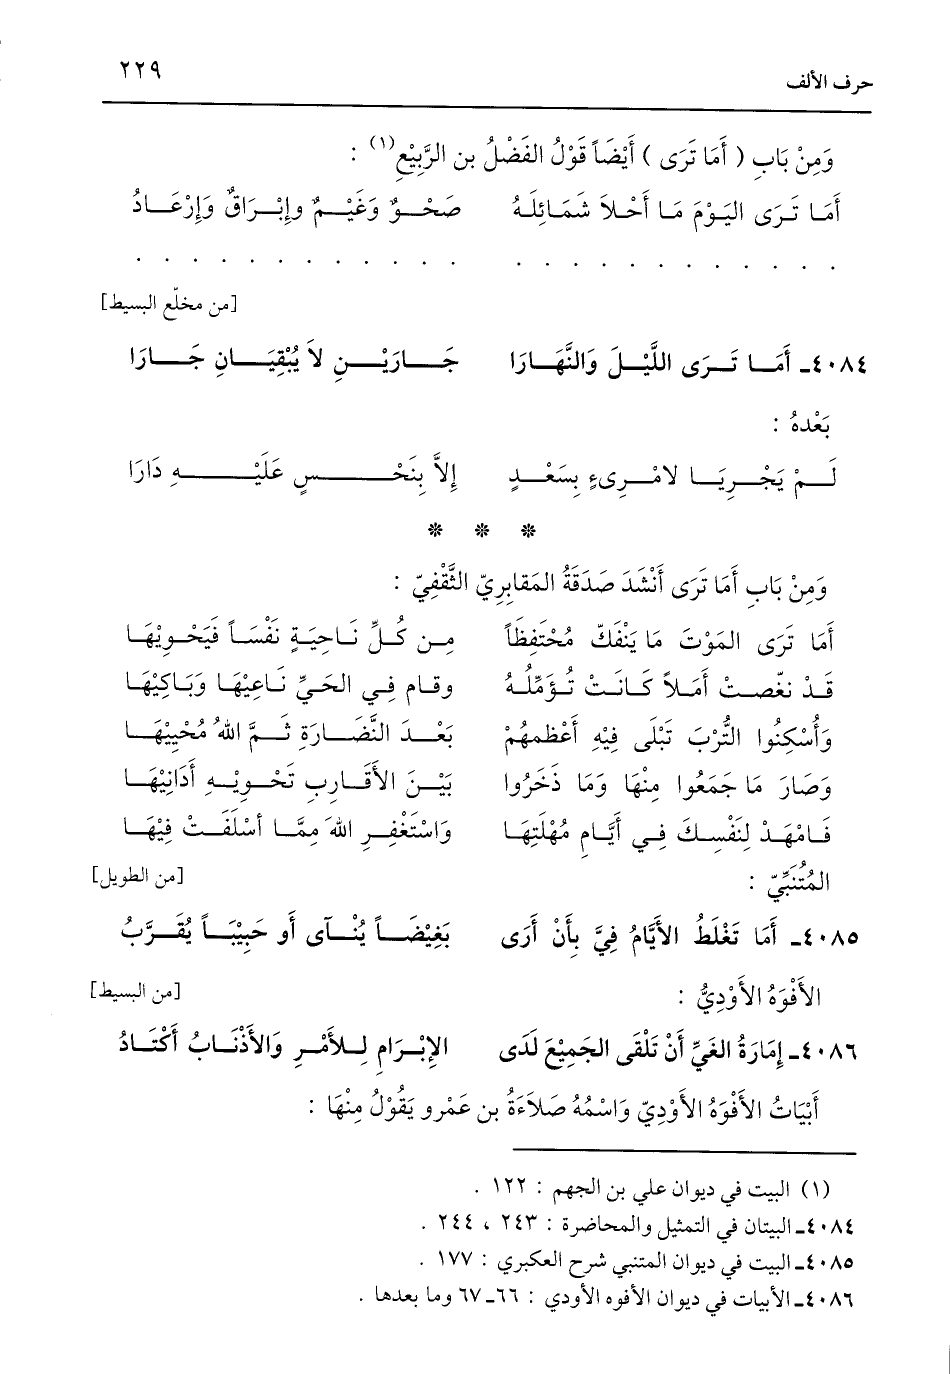 حرف الألف ٢٢٩
وَمِنْ بَابِ ( أَمَا تَرَى ) أَيْضَاً قَوْلُ الفَضْلُ بن الرَّبِيْعِ(١) :
أَمَا تَرَى اليَوْمَ مَا أَحْلاَ شَمَائلَهُ صَحْوٌ وَغَيْمٌ وإبْرَاقٌ وَإرْعَادُ
. . . . . . . . . . . . . . . . . . . . . . . .
[من مخلّع البسيط]
٤٠٨٤ـ أَمَا تَرَى اللَّيْلَ وَالنَّهَارَا جَارَيْنِ لاَ يُبْقِيَانِ جَارَا
بَعْدهُ :
لَمْ يَجْرِيَا لامْرِىءٍ بِسَعْدٍ إلاَّ بِنَحْسٍ عَلَيْهِ دَارَا
* * *
وَمِنْ بَابِ أَمَا تَرَى أَنْشَدَ صَدَقَةُ المَقابِرِيّ الثَّقْفِيّ :
أَمَا تَرَى المَوْتَ مَا يَنْفَكّ مُخْتَفِظَاً مِن كُلِّ نَاحِيَةٍ نَفْسَاً فَيَحْوِيْهَا
قَدْ نغّصتْ أَمَلاً كَانَتْ تُؤَمِّلُهُ وقام فِي الحَيِّ نَاعِيْهَا وَبَاكِيْهَا
وَأُسْكِنُوا التُّرْبَ تَبْلَى فِيْهِ أَعْظمِهُمْ بَعْدَ النَّضَارَةِ ثمَّ اللهُ مُحْيِيْهَا
وَصَارَ مَا جَمَعُوا مِنْهَا وَمَا ذَخَرُوا بَيْنَ الأَقَارِبِ تَحْوِيْهِ أَدَانِيْهَا
فَامْهَدْ لِنَفْسِكَ فِي أَيَّامِ مُهْلَتِهَا وَاسْتَغْفِرِ اللهَ مِمَّا أسْلَفَتْ فِيْهَا
المُتَنَبِّيّ : [من الطويل]
٤٠٨٥ـ أَمَا تَغْلَطُ الأَيَّامُ فِيَّ بِأَنْ أَرَى بَغِيْضَاً يُنْآى أو حَبِيْبَاً يُقَرَّبُ
الأَفْوَهُ الأَوْدِيُّ : [من البسيط]
٤٠٨٦ـ إمَارَةُ الغَيِّ أَنْ تَلْقَى الجَمِيْعَ لَدَى الإبْرَامِ لِلأَمْرِ وَالأَذْنَابُ أَكْتَادُ
أَبْيَاتُ الأَفْوَهُ الأَوْدِيّ وَاسْمُهُ صَلاَءَةُ بن عَمْرو يَقُوْلُ مِنْهَا :
(١) البيت في ديوان علي بن الجهم : ١٢٢ .
٤٠٨٤ـ البيتان في التمثيل والمحاضرة : ٢٤٣ ، ٢٤٤ .
٤٠٨٥ـ البيت في ديوان المتنبي شرح العكبري : ١٧٧ .
٤٠٨٦ـ الأبيات في ديوان الأفوه الأودي : ٦٦ـ ٦٧ وما بعدها .